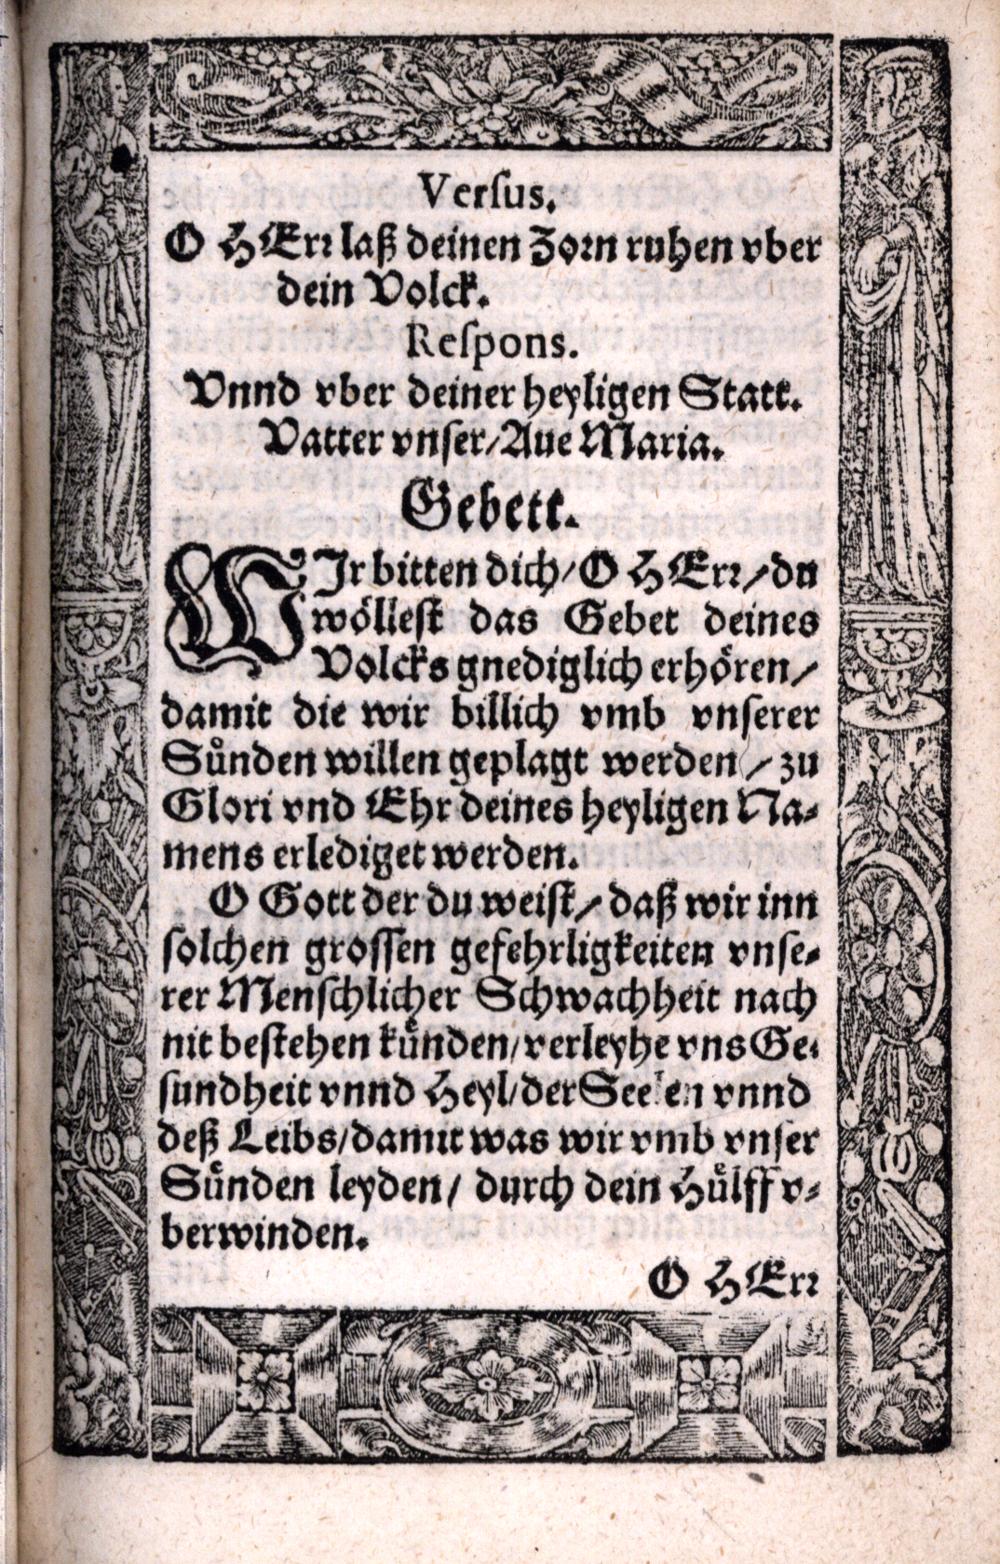 Verſus.
O HErr laß deinen Zorn ruhen vber
dein Volck.
Reſpons.
Vnnd vber deiner heyligen Statt.
Vatter vnſer/Aue Maria.
Gebett.
WJr bitten dich/O HErr/du
wölleſt das Gebet deines
Volcks gnediglich erhören/
damit die wir billich vmb vnſerer
Sünden willen geplagt werden/zu
Glori vnd Ehr deines heyligen Na-
mens erlediget werden.
O Gott der du weiſt/daß wir inn
ſolchen groſſen gefehrligkeiten vnſe-
rer Menſchlicher Schwachheit nach
nit beſtehen künden/verleyhe vns Ge-
ſundheit vnnd Heyl/der Seelen vnnd
deß Leibs/damit was wir vmb vnſer
Sünden leyden/durch dein Hülff v-
berwinden.
O HErr